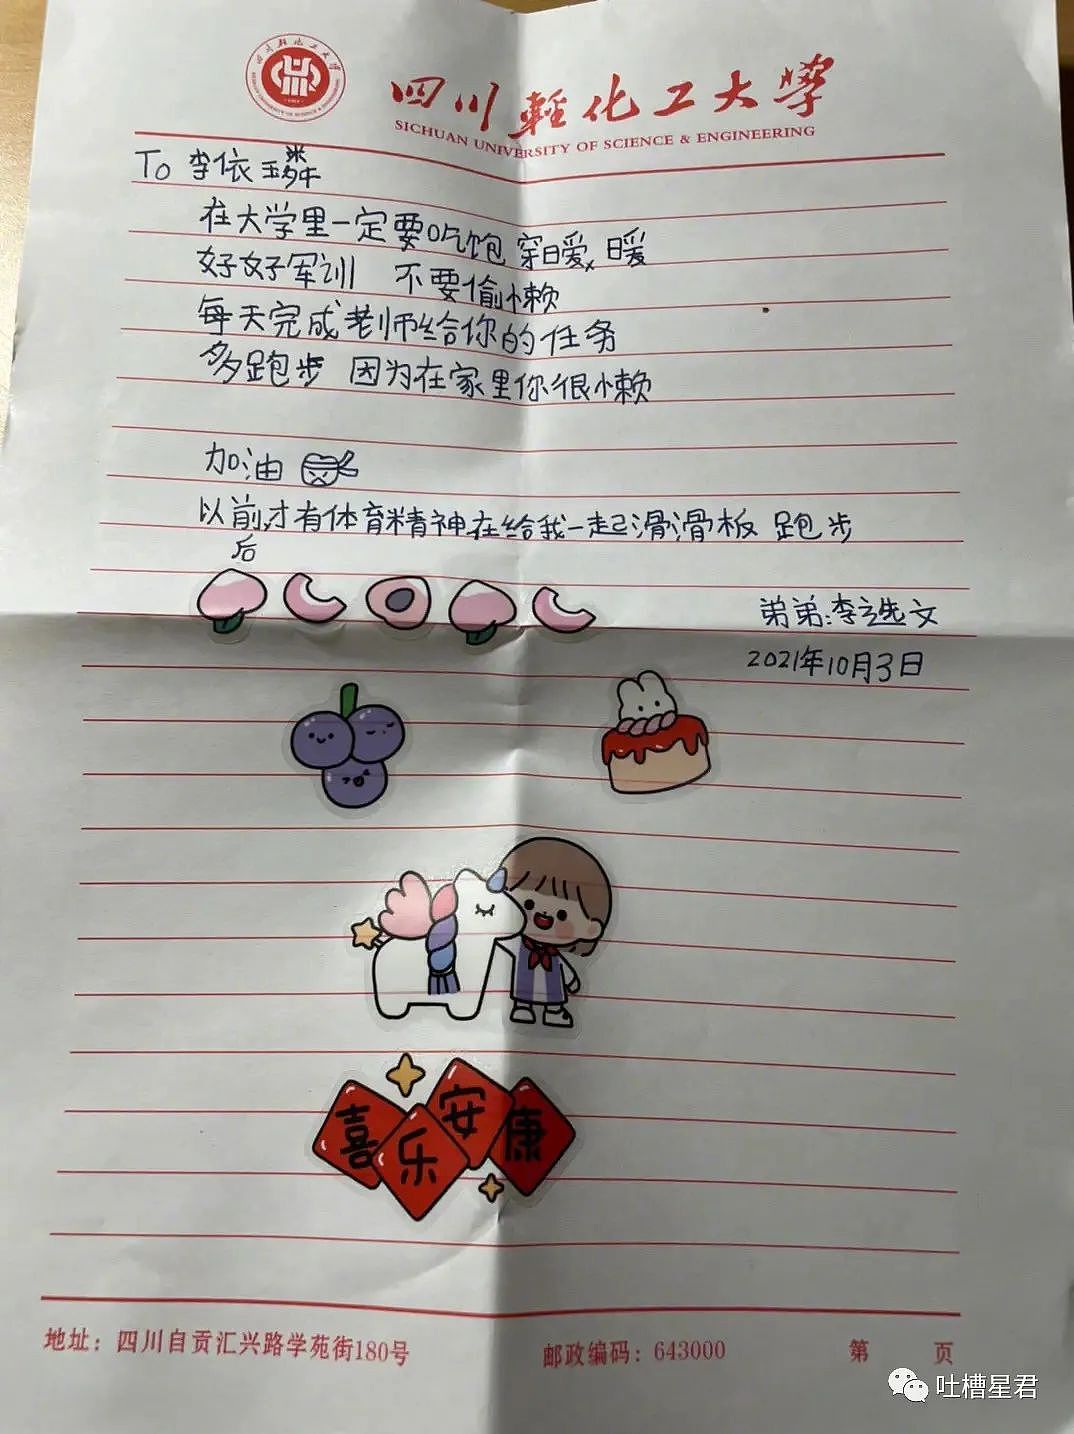 四川輕化工大學
SICHUAN UNIVERSITY OF SCIENCE & ENGINEERING
To 李依璘
在大学里一定要吃饱 穿暖 暖
好好军训 不要偷懒
每天完成老师给你的任务
多跑步 因为在家里你很懒
加油
以前才有体育精神在给我一起滑滑板 跑步
后
弟弟:李选文
2021年10月3日
喜乐安康
地址：四川自贡汇兴路学苑街180号 邮政编码：643000 第 页
吐槽星君